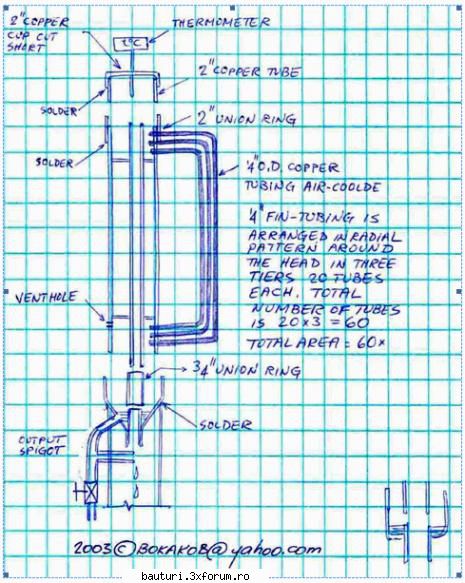 2" COPPER
CUP CUT
SHORT
THERMOMETER
t°C
2" COPPER TUBE
SOLDER
2" UNION RING
SOLDER
1/4" O.D. COPPER
TUBING AIR-COOLDE
1/4" FIN-TUBING IS
ARRANGED IN RADIAL
PATTERN AROUND
THE HEAD IN THREE
TIERS 20 TUBES
EACH. TOTAL
NUMBER OF TUBES
IS 20×3 = 60
TOTAL AREA = 60×
VENTHOLE
3/4" UNION RING
SOLDER
OUTPUT
SPIGOT
2003 © BOKAKOB@yahoo.com
bauturi.3xforum.ro